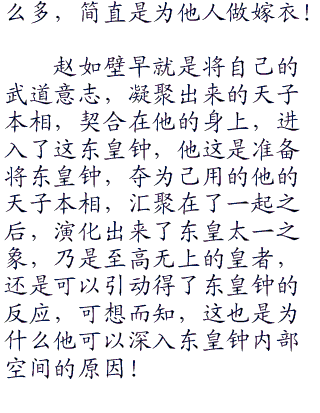 么多，简直是为他人做嫁衣！
赵如壁早就是将自己的
武道意志，凝聚出来的天子
本相，契合在他的身上，进
入了这东皇钟，他这是准备
将东皇钟，夺为己用的他的
天子本相，汇聚在了一起之
后，演化出来了东皇太一之
象，乃是至高无上的皇者，
还是可以引动得了东皇钟的
反应，可想而知，这也是为
什么他可以深入东皇钟内部
空间的原因！